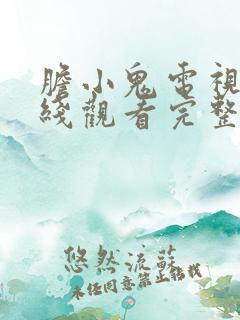 膽小鬼電視
綫觀看完整
悠然流蘇
未經同意禁止轉載